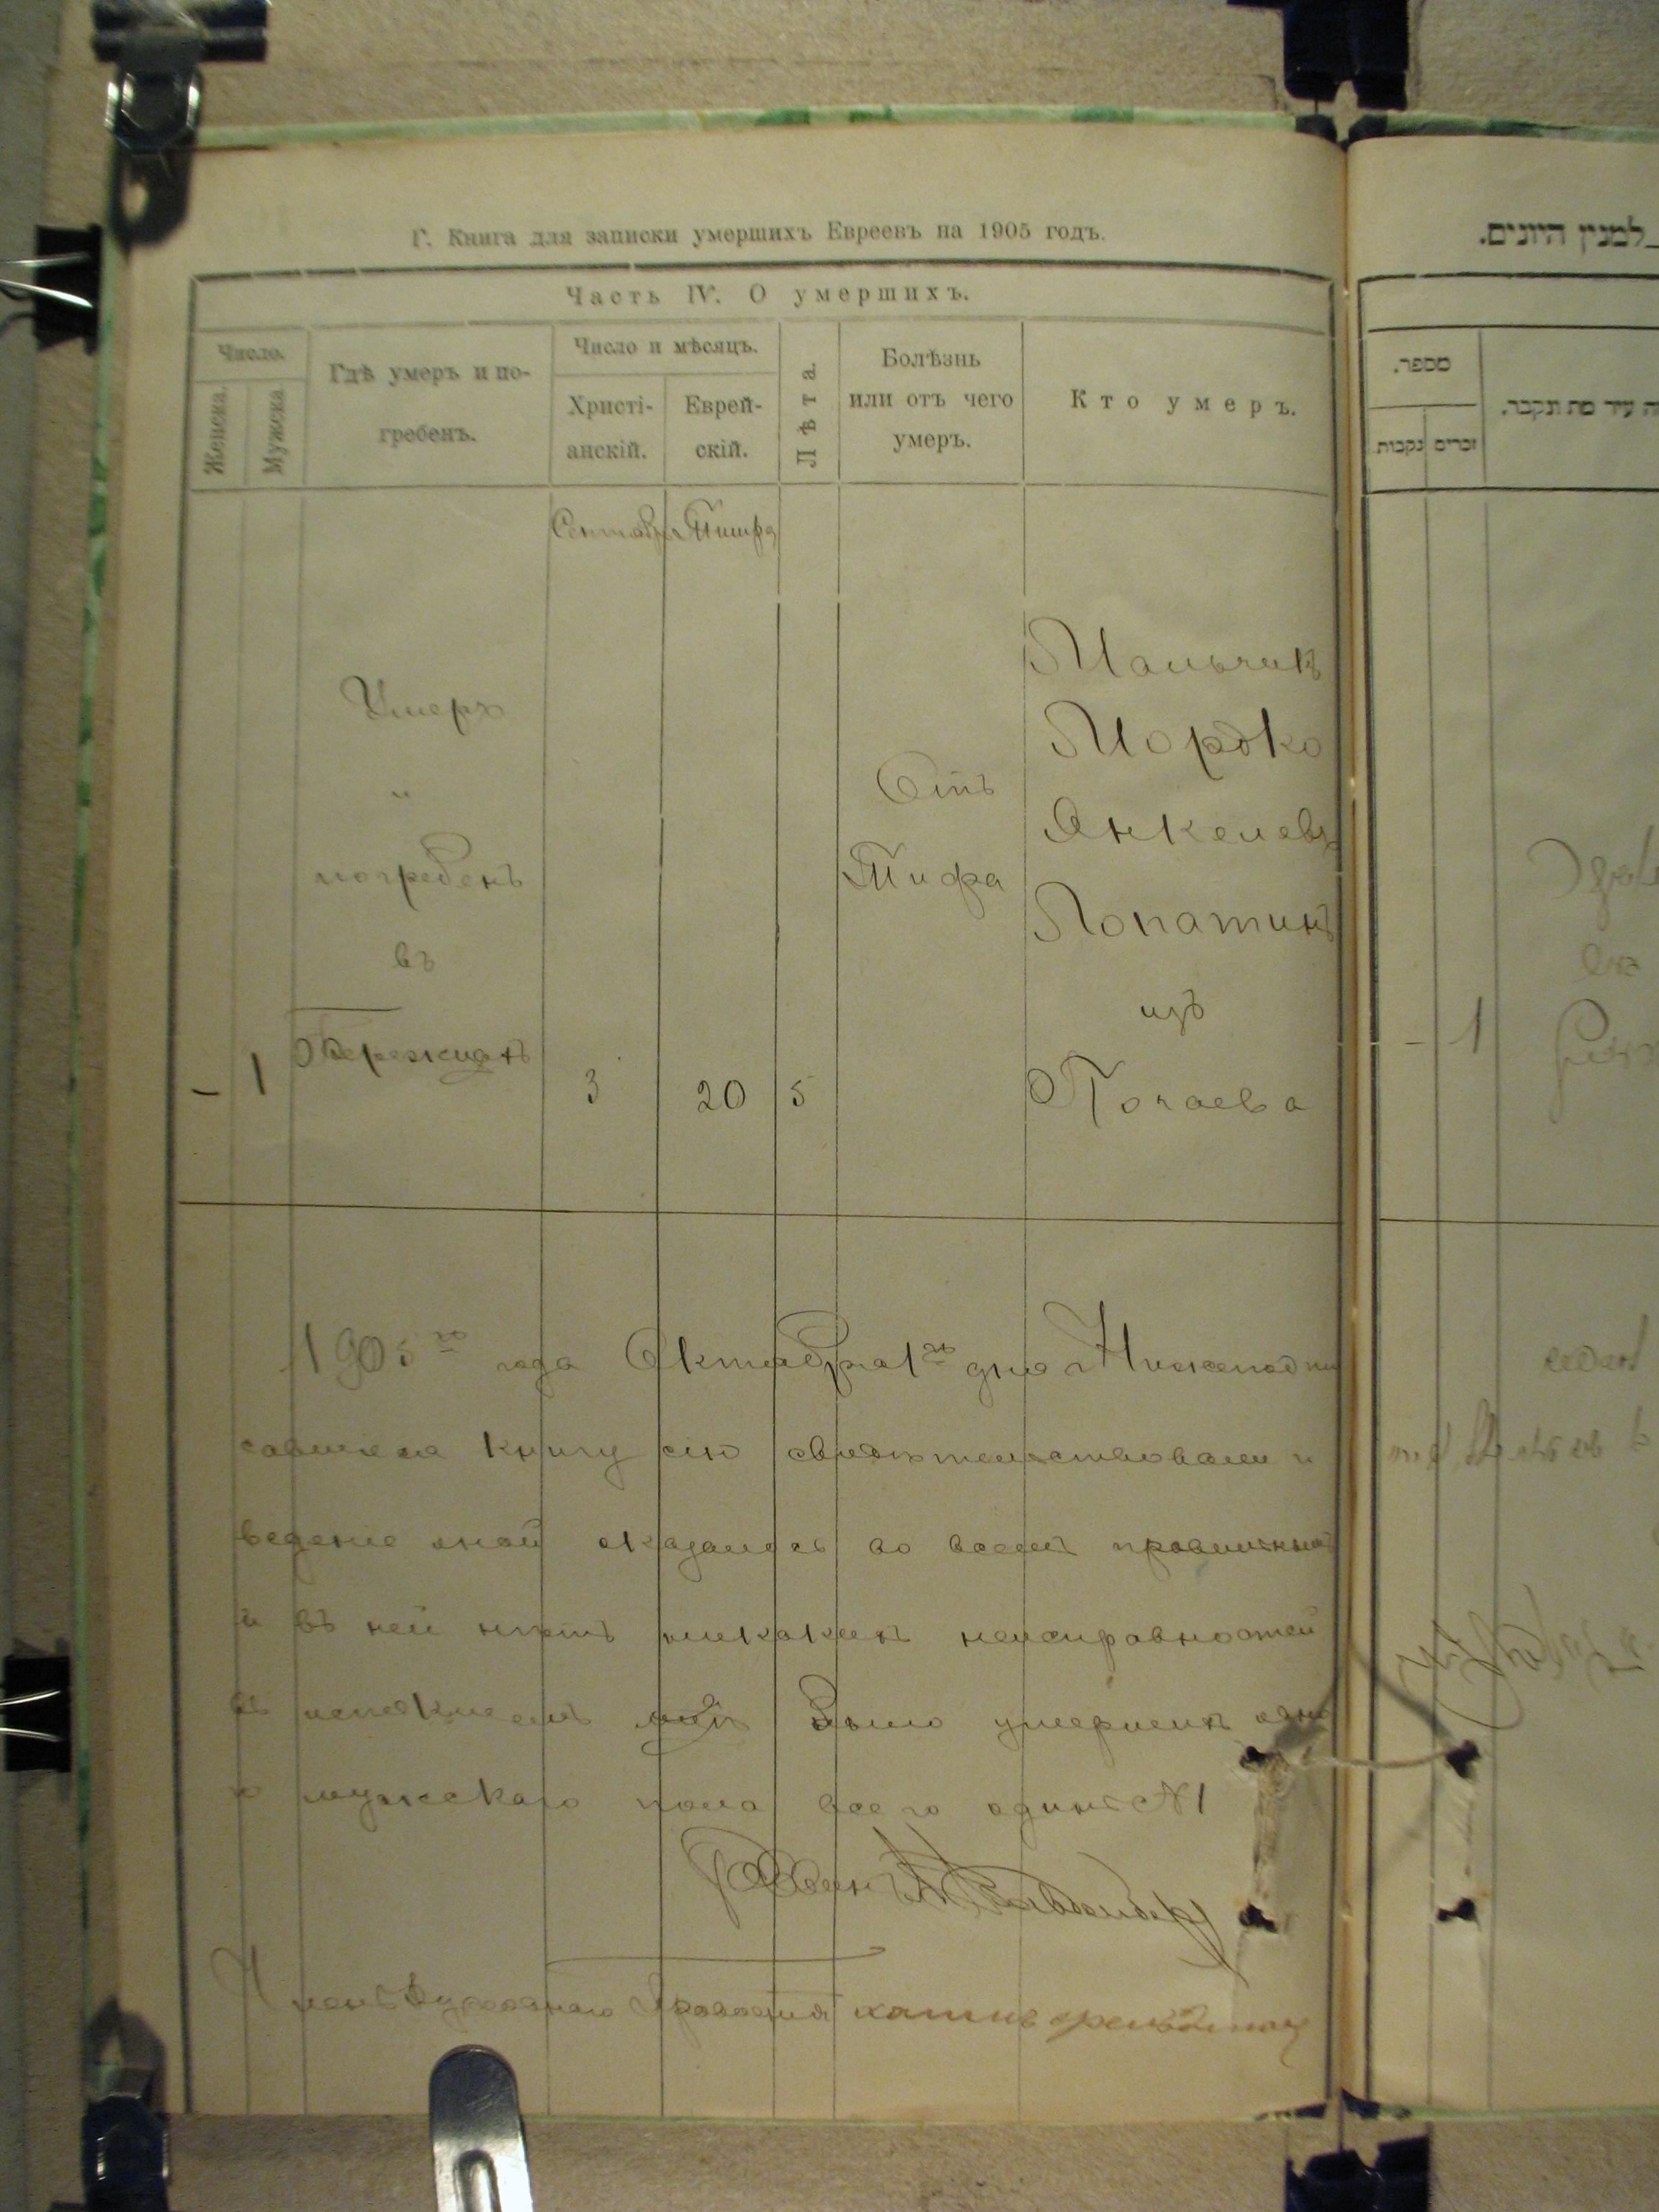 Г. Книга для записки умершихъ Евреевъ на 1905 годъ.
Часть IV. О умершихъ.
Число.
Женска.
Мужска
Гдѣ умеръ и по-
гребенъ.
Число и мѣсяцъ.
Христі-
анскій.
Еврей-
скій.
Лѣта.
Болѣзнь
или отъ чего
умеръ.
Кто умеръ.
Сентябр Тишра
Умеръ
и
погребенъ
въ
Бережцахъ
– 1
3
20
5
Отъ
Тифа
Мальчикъ
Мордко
Янкелевъ
Лопатинъ
изъ
Почаева
1905го года Октября 1го дня Нижеподпи
савшіеся книгу сію свидѣтельствовали и
веденіе оной оказалось во всемъ правильнымъ
и въ ней нѣтъ никакихъ неисправностей
въ было умершихъ одно
мужскаго пола всего одинъ №1
Раввинъ
Членъ Духовнаго Правленія
למנין היונים.
מספר.
נקבות
זכרים
עיר מת ונקבר.
– 1